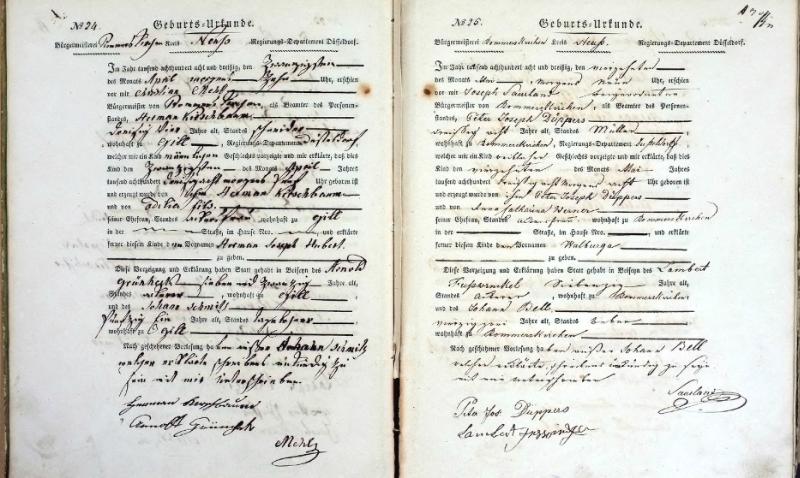 No 24. Geburts-Urkunde.
Bürgermeisterei Kreis Neuß Regierungs-Departement Düsseldorf.
Im Jahr tausend achthundert acht und dreißig, den Zwanzigsten
des Monats April morgens Zehn Uhr, erschien
vor mir Christian Mehl
Bürgermeister von Rommerskirchen, als Beamten des Personen-
standes, Herman Kirschbaum
dreißig vier Jahre alt, Standes Schneider
wohnhaft zu Gill, Regierungs-Departement Düsseldorf,
welcher mir ein Kind männlichen Geschlechts vorzeigte und mir erklärte, daß dies
Kind den Zwanzigsten des Monats April
tausend achthundert dreißig acht morgens fünf Uhr geboren ist
und erzeugt wurde von ihm Herman Kirschbaum
und von
seiner Ehefrau, Standes wohnhaft zu Gill
in der Straße, im Hause Nro. und erklärte
ferner diesem Kinde den Vornamen Herman Joseph Hubert
zu geben.
Diese Vorzeigung und Erklärung haben Statt gehabt in Beiseyn des Arnold
sieben und zwanzig Jahre alt,
Standes Ackerer, wohnhaft zu Gill
und des Johann Schmitz
fünfzig ein Jahre alt, Standes Tagelöhner
wohnhaft zu Gill
Nach geschehener Vorlesung haben außer Johann Schmitz
welcher erklärte schreibens unkundig zu
sein mit mir unterschrieben.
Herman Kirschbaum
Arnold
Mehl
No 25. Geburts-Urkunde.
Bürgermeisterei Rommerskirchen Kreis Neuß. Regierungs-Departement Düsseldorf.
Im Jahr tausend achthundert acht und dreißig, den vierzehnten
des Monats Mai morgens neun Uhr, erschien
vor mir Joseph Saurland Beigeordneter
Bürgermeister von Rommerskirchen, als Beamten des Personen-
standes, Peter Joseph Düppers
dreißig acht Jahre alt, Standes Müller
wohnhaft zu Rommerskirchen, Regierungs-Departement Düsseldorf
welcher mir ein Kind weiblichen Geschlechts vorzeigte und mir erklärte, daß dies
Kind den vierzehnten des Monats Mai
tausend achthundert dreißig acht morgens acht Uhr geboren ist
und erzeugt wurde von ihm Peter Joseph Düppers
und von Anna Catharina Werner
seiner Ehefrau, Standes wohnhaft zu Rommerskirchen
in der Straße, im Hause Nro. und erklärte
ferner diesem Kinde den Vornamen Walburga
zu geben.
Diese Vorzeigung und Erklärung haben Statt gehabt in Beiseyn des Lambert
Jahre alt,
Standes Ackerer, wohnhaft zu Rommerskirchen
und des Johann Bell
vierzig zwei Jahre alt, Standes Weber
wohnhaft zu Rommerskirchen
Nach geschehener Vorlesung haben außer Johann Bell
welcher erklärte, schreibens unkundig zu sein
mit mir unterschrieben
Saurland
Peter Jos. Düppers
Lambert